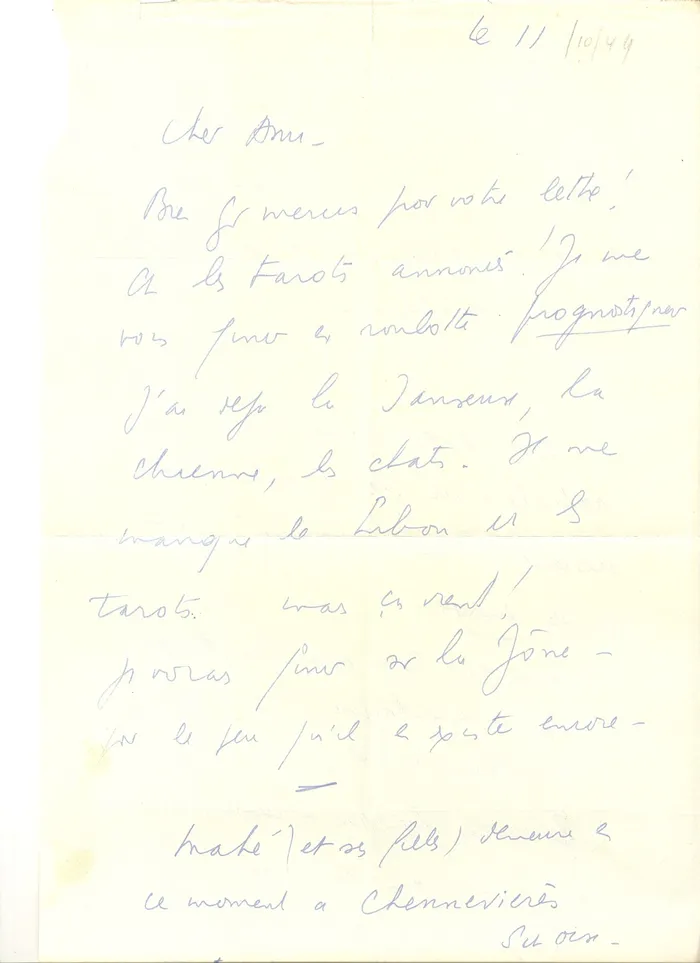 le 11 /10/44
Cher Ami -
Bien gr mercis pour votre lettre!
et les tarots annoncés! Je me
vois finir en roulotte. prognostiquer
J'ai reçu la Danseuse, la
chienne, les chats. Il me
manque le Liban et les
tarots. mais ça vient!
finir sur la Zône -
pour le peu qu'il en existe encore -
Mahé (et ses filles) demeure en
ce moment a Chennevières
sur Oise -